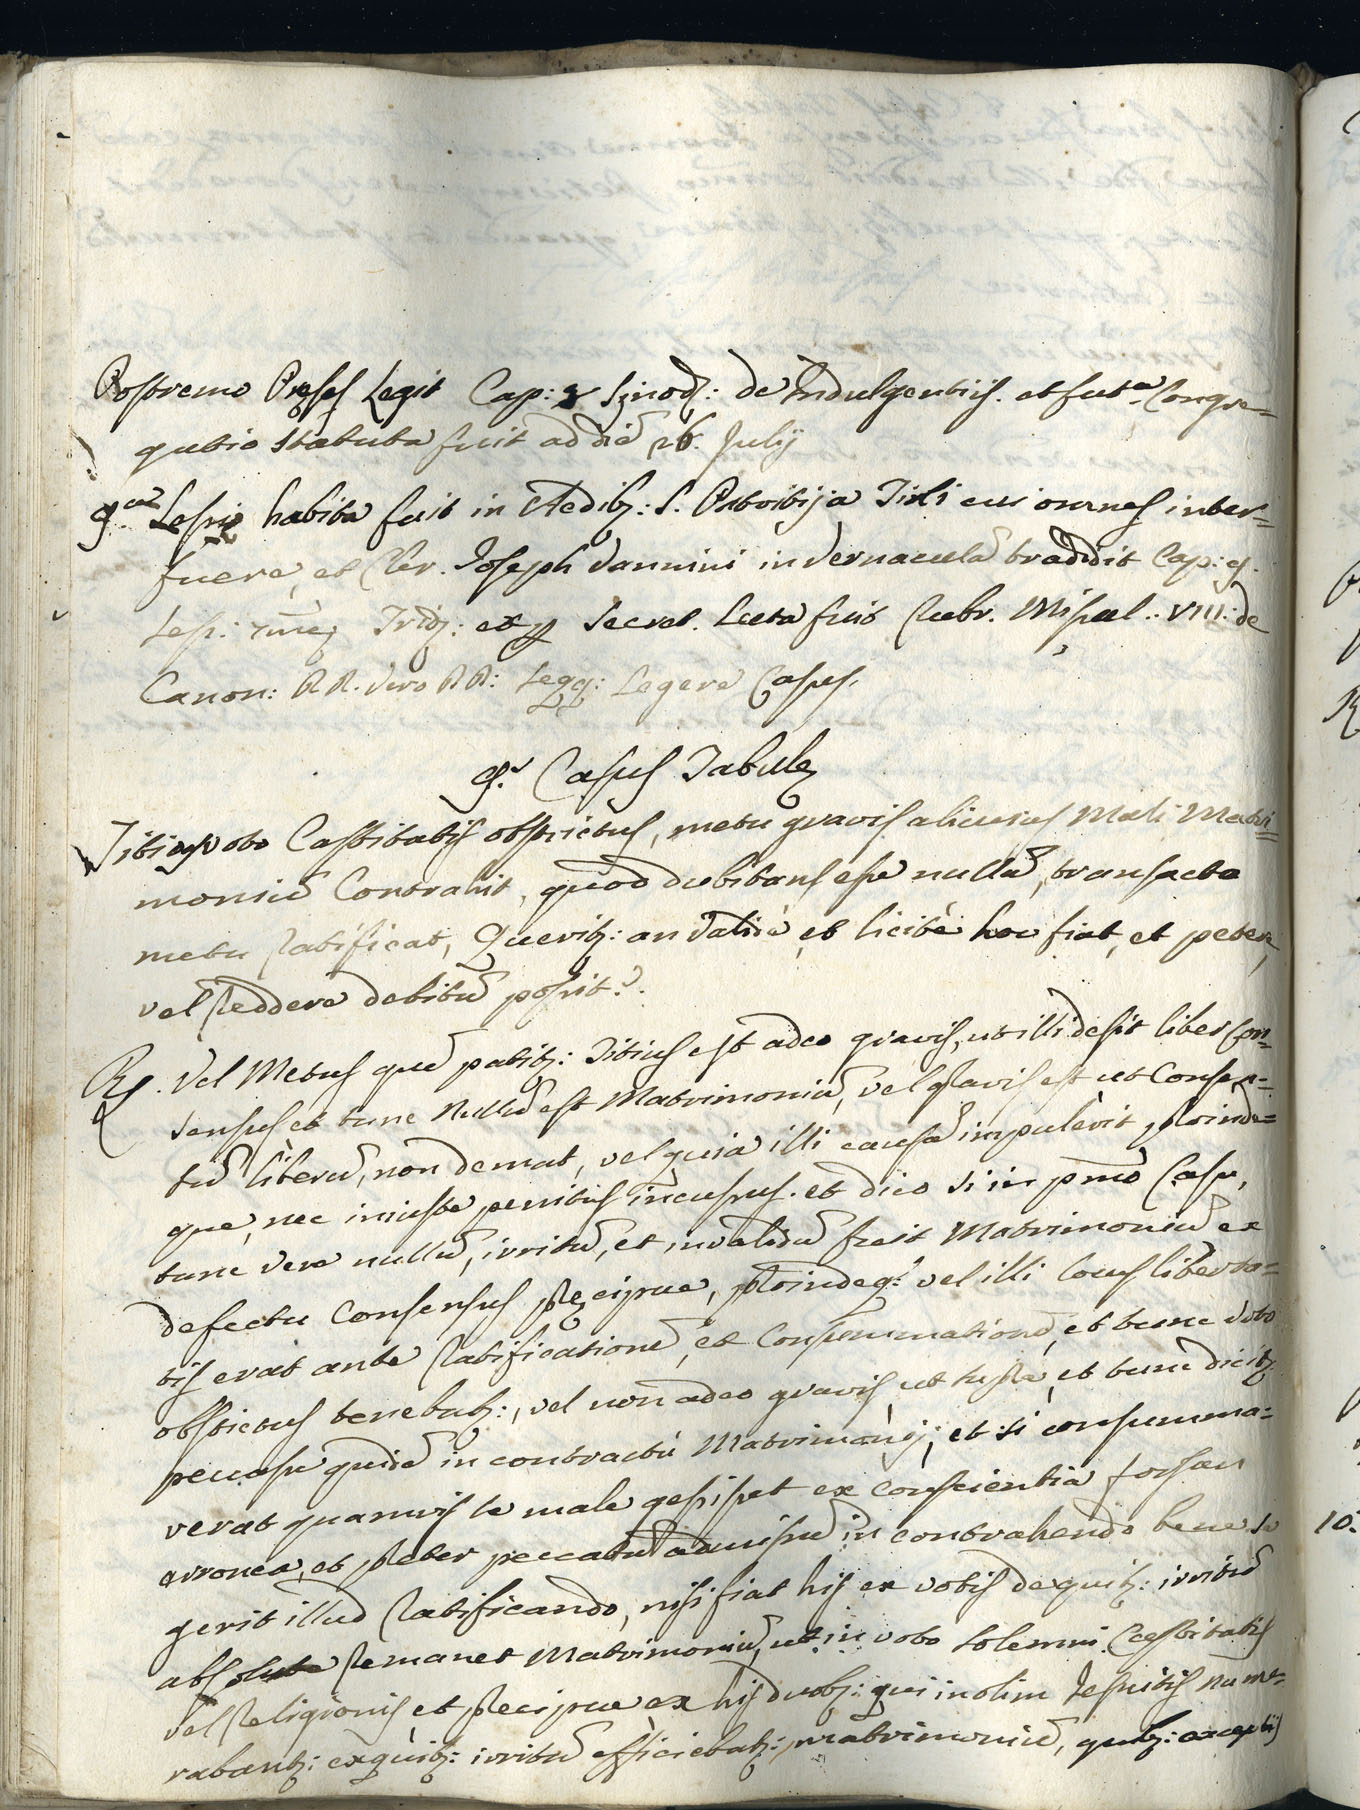 Postremo Preses Legit Cap: 2 Sinod: de Indulgentiis. et fut.a Congre=
gatio Statuta fuit ad diẽ 26. Julij
9.na Sessio habita fuit in Aedibʒ: S. Patritij a Tixli cui omnes inter=
fuere, et Cler. Joseph Vannini in vernacula tradidit Cap: 9.
Sess: Trid: ex Secret. Lecta fuit Rubr. Missal.. VIII: de
Canon: RR. vero RR: Legg: Legere Casus.
9.s Casus Tabule
Titius voto Castitatis obstrictus, metu gravis alicuius Mali Matri=
moniũ Contrahit, quod dubitans esse nullũ, transacto
metu ratificat, Queritʒ: an valide, et licite hoc fiat, et petere,
vel reddere debitũ possit?.
Rs. Vel Metus quẽ patitʒ: Titius est adeo gravis, ut illi desit liber Con=
sensus et tunc Nullũ est Matrimoniũ, vel gravis est ut Consen=
tũ liberũ, non demat, vel quia illi causã impulerit, proinde=
que, nec iniuste penitus incussus. et dico si in pmõ Casu,
tunc vere nullũ, irritũ, et invalidũ fuit Matrimoniũ ex
defectu Consensus recipue, proindeq: vel illi locus liberta=
tis erat ante ratificationẽ, et Consummationẽ, et tunc voto
obstrictus tenebatʒ:, vel non adeo gravis, ut supra, et tunc dicitʒ
peccasse quidẽ in contractu Matrimonij, et si consumma=
verat quamvis se male gessisset ex conscientia forsan
erronea, et preter peccatũ admissũ in contrahendo bene se
gerit illud ratificando, nisi fiat his ex votis dequibʒ: irritũ
absolute remanet Matrimoniũ, ut in voto solemni Castitatis
vel Religionis et recipue ex his duobʒ: qui in olim Jesuitis nume=
rabantʒ: exquibʒ: irritũ efficiebatʒ: matrimoniũ, quibʒ: exceptis
10.